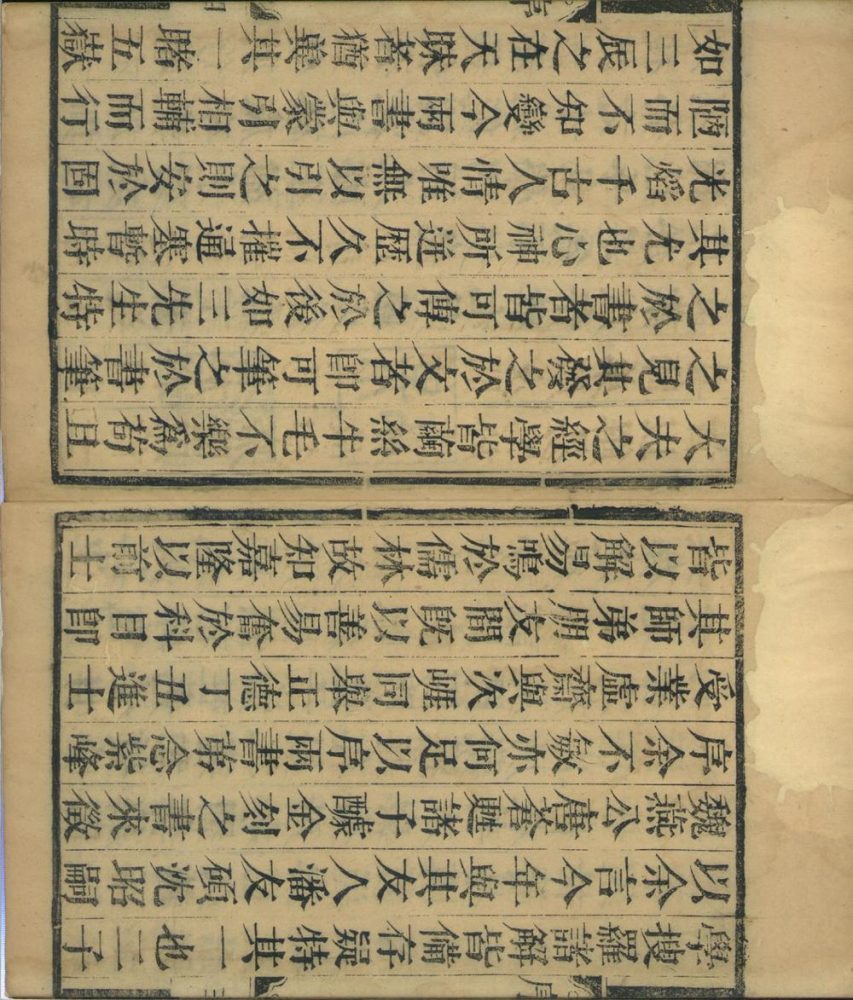 學搜羅諸解皆備存疑特其一也二三子
以余言今年與其友人潘友碩沈昭嗣
魏燕公唐荅甦諸子醵金刻之書來徵
序余不敏亦何足以序兩書第念紫峰
受業虛齋與次崖同舉正德丁丑進士
其師弟朋友間既以善易奮於科目即
皆以解易鳴於儒林故知嘉隆以前士
大夫之經學皆繭絲牛毛不樂爲苟且
之見其發之於文者即可筆之於書筆
之於書者皆可傳之於後如三先生特
其尤也心神所迸歷久不摧通塞暫時
光焰千古人情唯無以引之則安於固
陋而不知變今兩書與蒙引相輔而行
如三辰之在天昧者猶冀其一睹五嶽